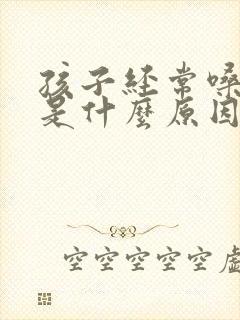 孩子经常嗓
是什麼原因
空空空空空虚